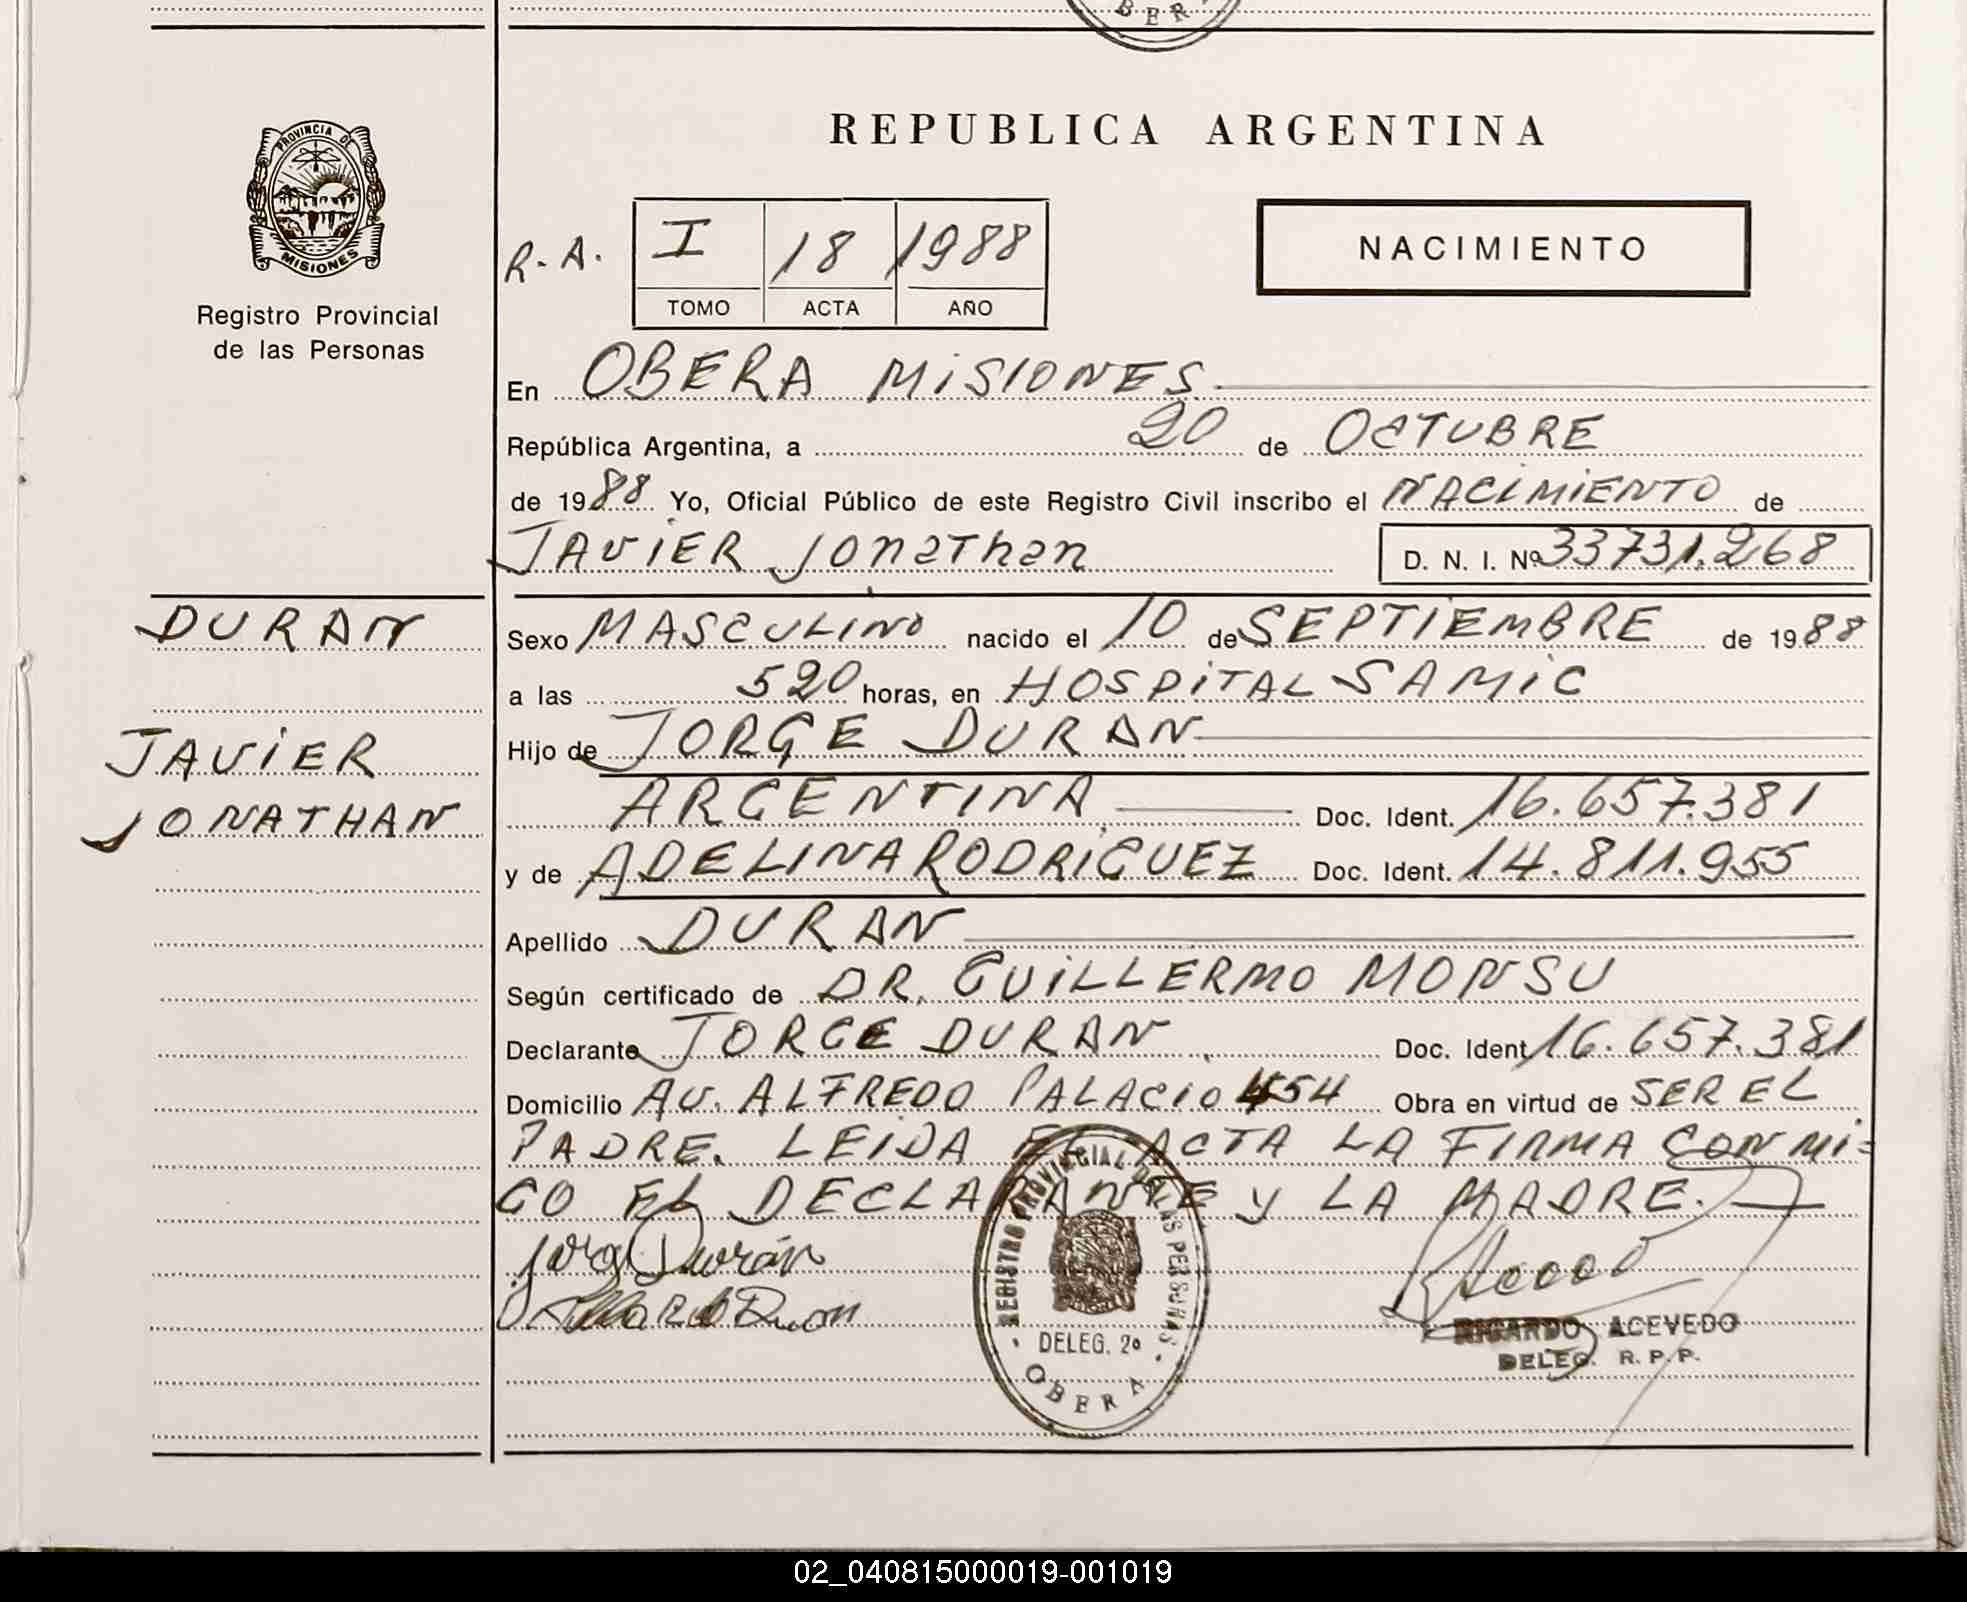 BER
PROVINCIA DE
MISIONES
Registro Provincial
de las Personas
REPUBLICA ARGENTINA
R. A. I 18 1988
TOMO ACTA AÑO
NACIMIENTO
En OBERA MISIONES
República Argentina, a 20 de OCTUBRE
de 1988 Yo, Oficial Público de este Registro Civil inscribo el NACIMIENTO de
JAVIER Jonathan D. N. I. Nº 33731.268
DURAN
JAVIER
JONATHAN
Sexo MASCULINO nacido el 10 de SEPTIEMBRE de 1988
a las 520 horas, en HOSPITAL SAMIC
Hijo de JORGE DURAN
ARGENTINA Doc. Ident. 16.657.381
y de ADELINA RODRIGUEZ Doc. Ident. 14.811.955
Apellido DURAN
Según certificado de DR. GUILLERMO MONSU
Declarante JORGE DURAN Doc. Ident. 16.657.381
Domicilio AV. ALFREDO PALACIO 454 Obra en virtud de SER EL
PADRE. LEIDA EL ACTA LA FIRMA CON MI-
GO EL DECLARANTE y LA MADRE.
Jorg Durán
REGISTRO PROVINCIAL DE LAS PERSONAS
DELEG. 2º
OBERA
RICARDO ACEVEDO
DELEG. R. P. P.
02_040815000019-001019